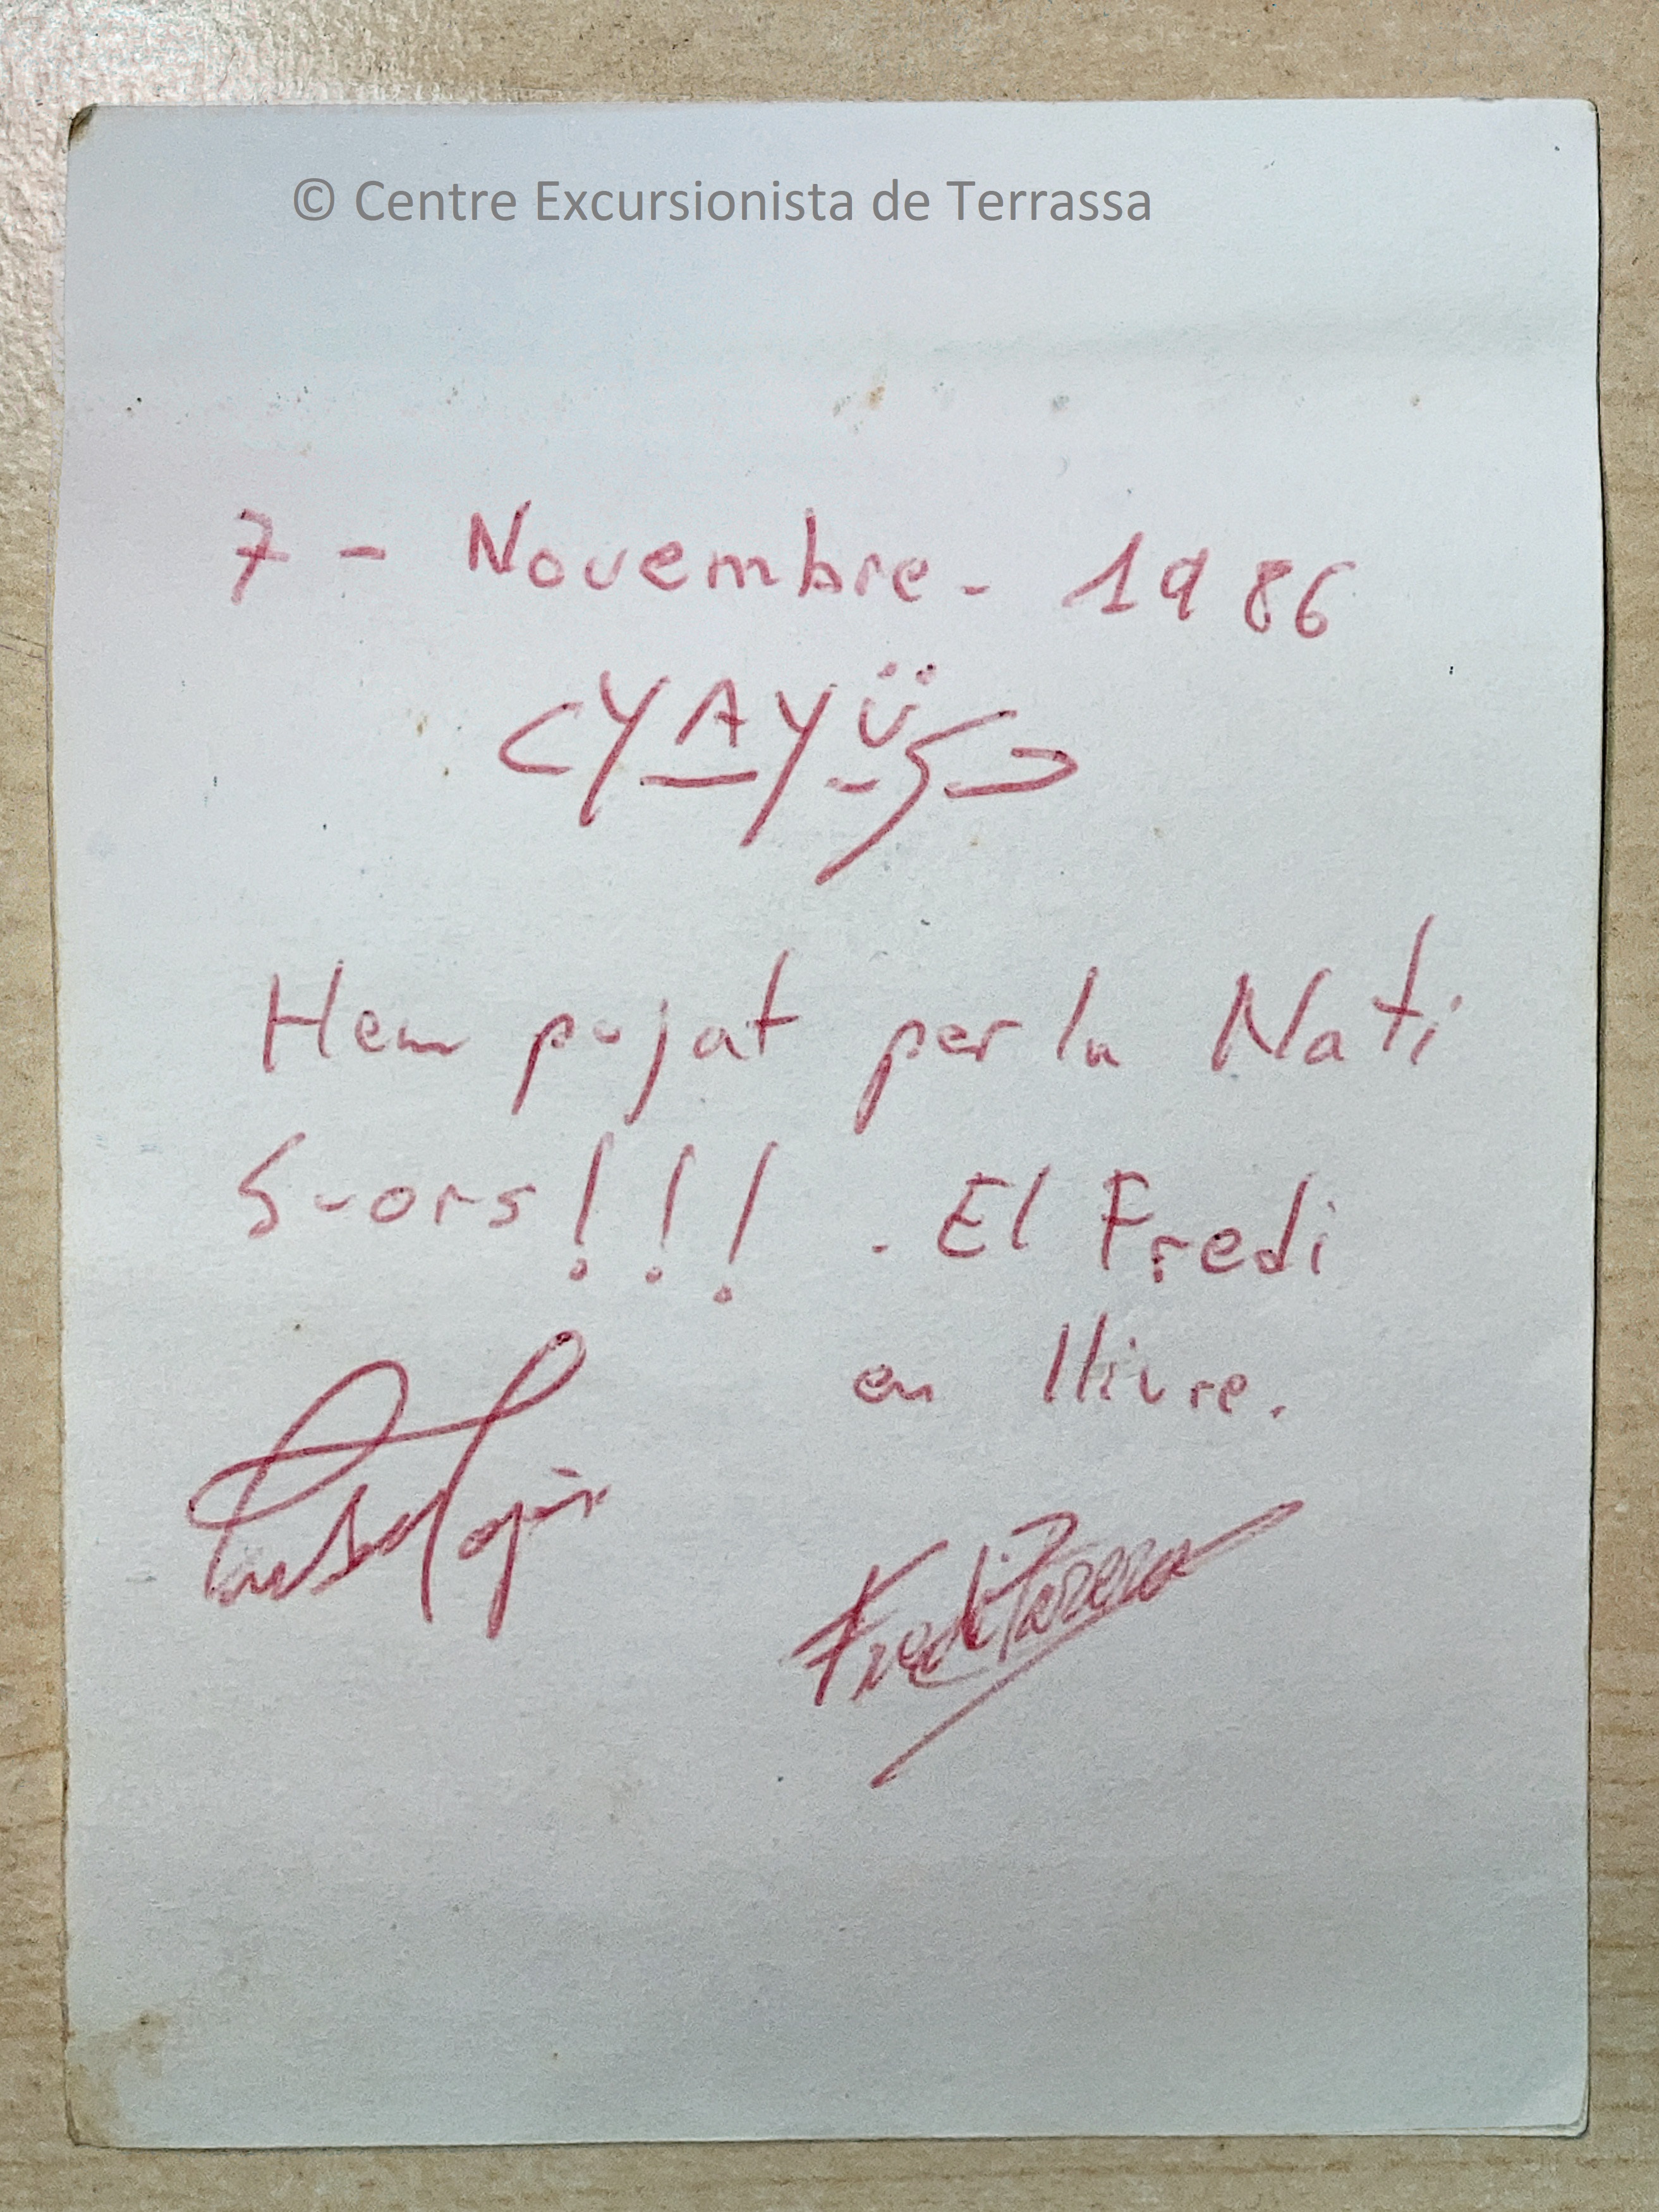 © Centre Excursionista de Terrassa
7 - Novembre - 1986
<YAYÜS>
Hem pujat per la Nati
Suors!!! . El Fredi
en lliure.
Fredi Parera